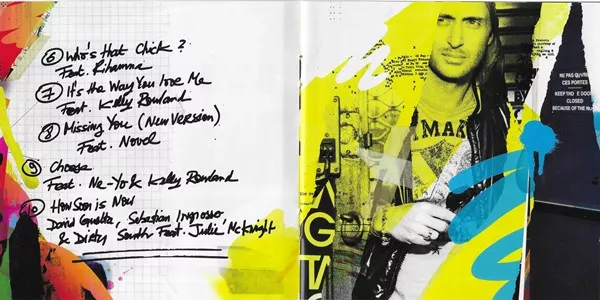 6 Who's that Chick ?
Feat. Rihanna
7 It's the Way You love Me
Feat. Kelly Rowland
8 Missing You (New Version)
Feat. Novel
9 Choose
Feat. Ne-Yo & Kelly Rowland
10 How Soon is Now
David Guetta, Sebastian Ingrosso
& Dirty South Feat. Julie McKnight
MAK
NE PAS OUVRI
CES PORTES
KEEP THE DOOR
CLOSED
BECAUSE OF THE